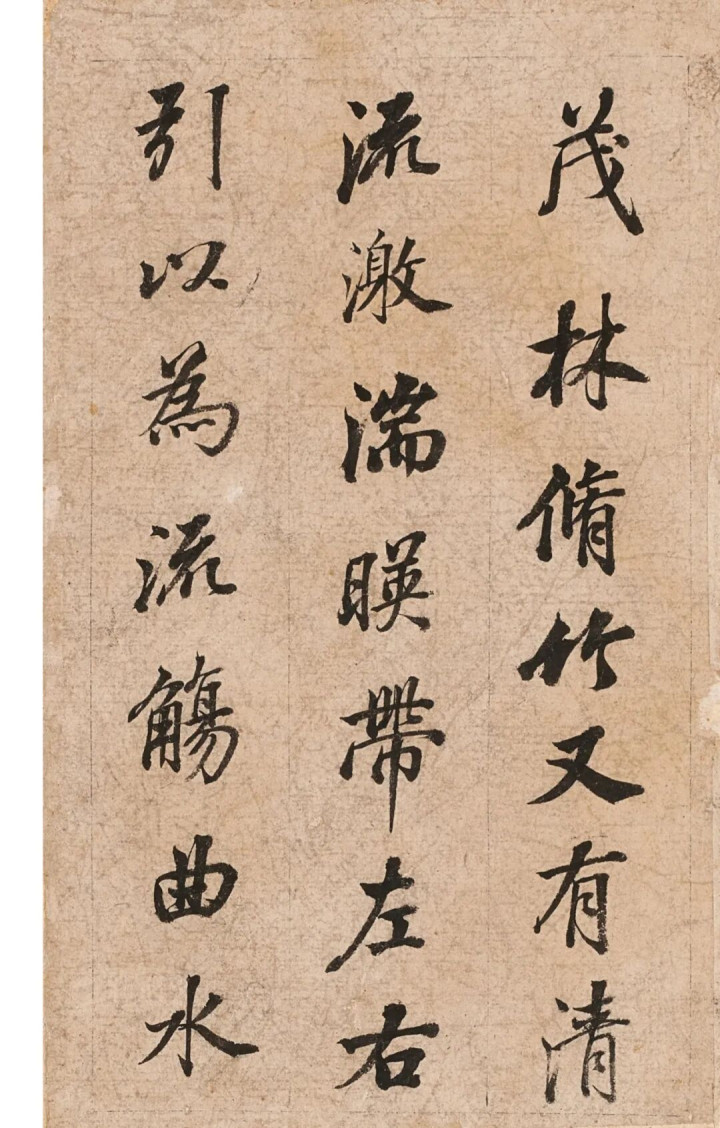 茂林脩竹又有清
流激湍暎帶左右
引以為流觴曲水